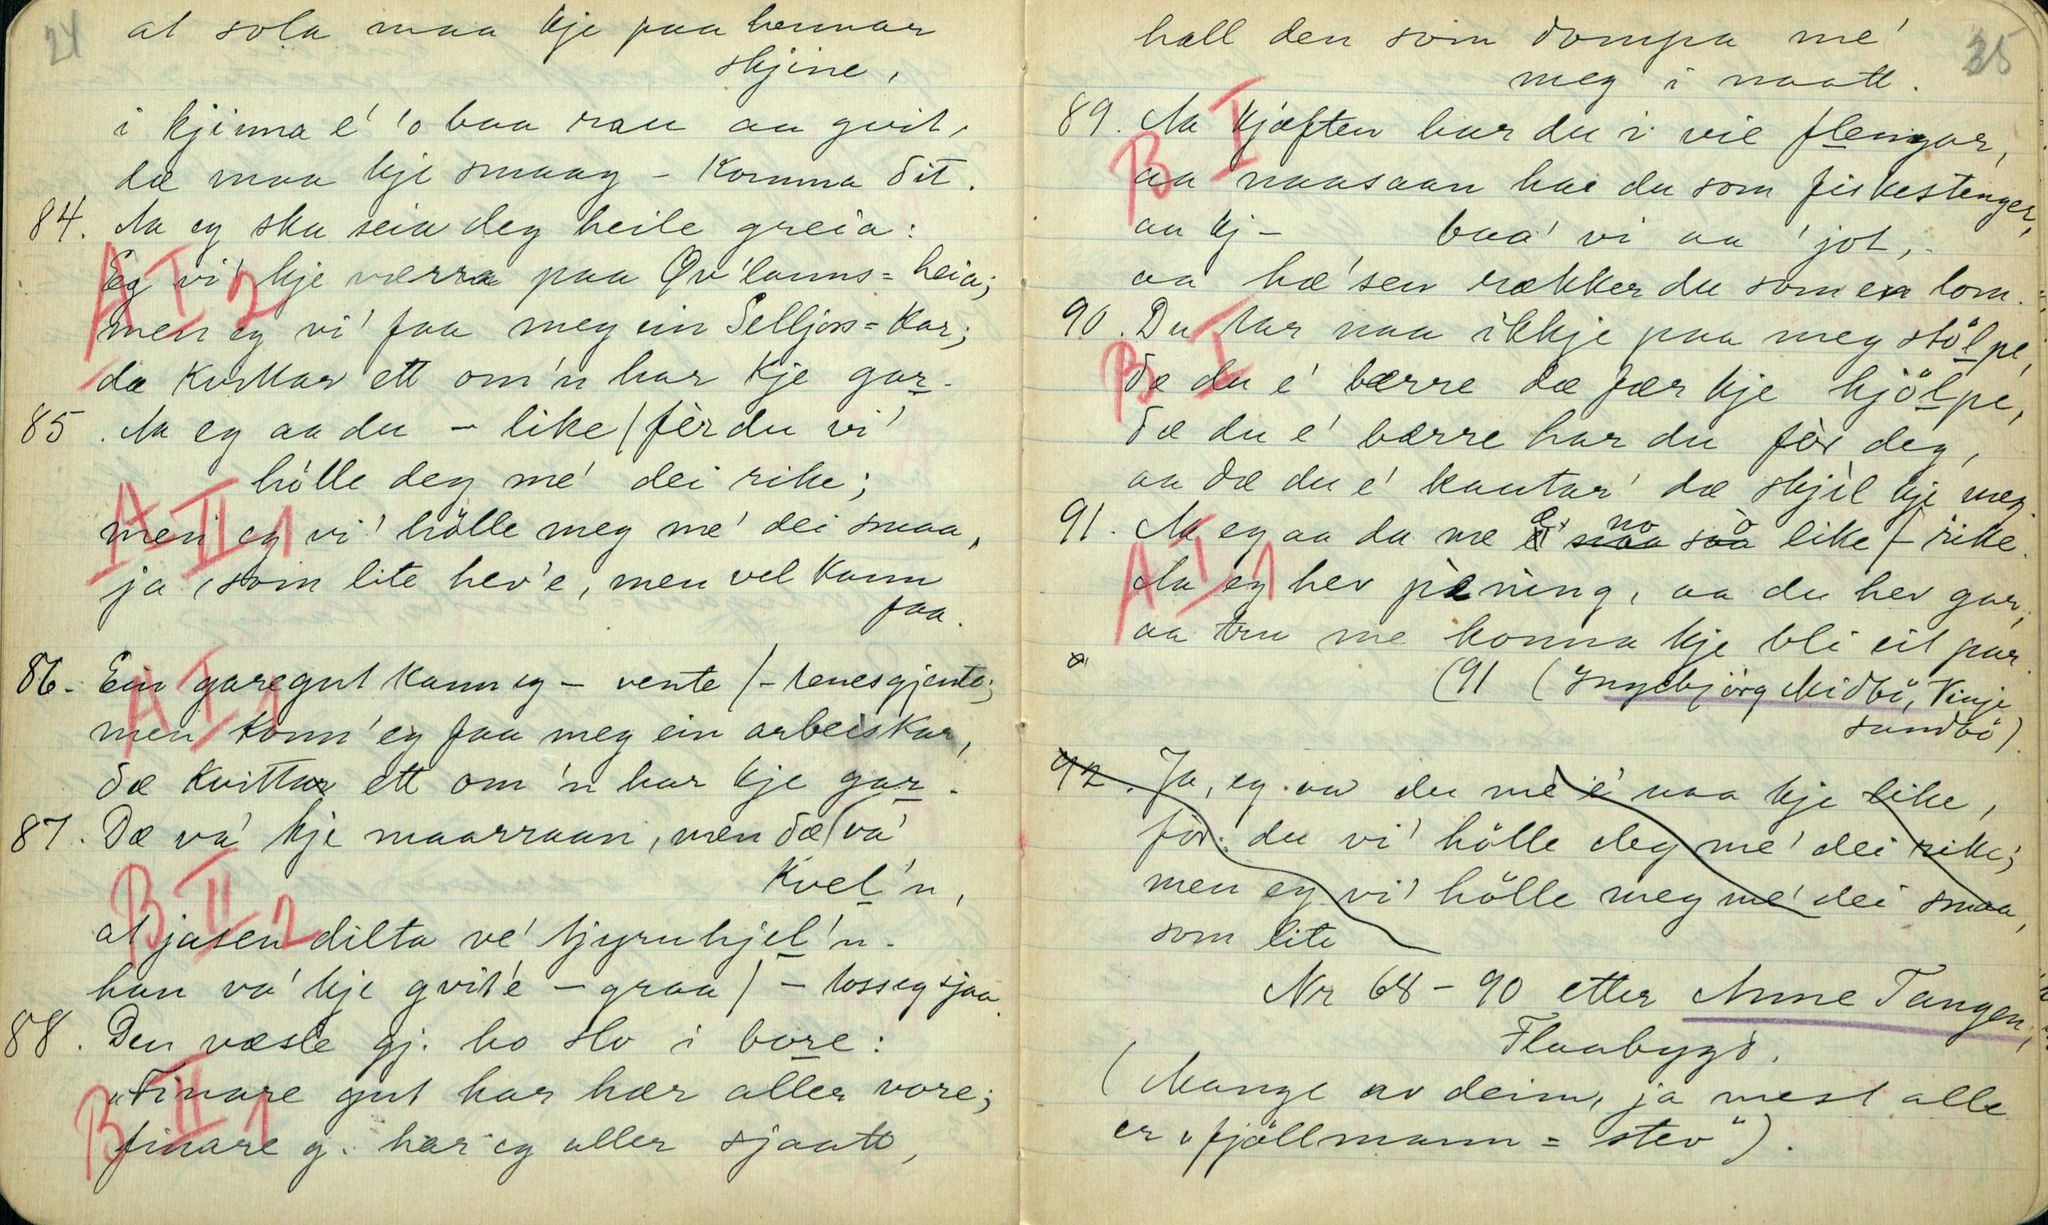 24
at sola maa kje paa hennar
skjine,
i kjinna e' 'o baa rau aa gvit,
dæ maa kje smaag – komma dit.
84. Aa eg ska seia deg heile greia:
A I 2
Eg vi' kje værra paa Qv'lanns=heia;
men eg vi' faa meg ein Selljors=kar;
dæ kvittar ett om'n har kje gar.
85. Aa eg aa du – like / fèr du vi'
hölle deg me' dei rike;
A II 1
men eg vi' hölle meg me' dei smaa,
ja, som lite hev'e, men vel kann
faa.
86. Ein garegut kann eg – vente / – tenesgjente;
A I 1
men konn' eg faa meg ein arbeiskar,
dæ kvittar ett om'n har kje gar.
87. Dæ va' kje maarraan, men dæ va'
kvel'n,
B II 2
at jasen dilta ve' tjyruhjel'n.
han va' kje gvit'e – graa / – tosseg sjaa.
88. Den væsle gj. ho slo i bore:
B II 1
"Finare gut har hær aller vore;
finare g. har eg aller sjaatt,
25
hall den som dompa me'
meg i naatt.
89. Aa kjæften har du i vie flengar,
B I
aa naasaan har du som fiskestenger,
aa kj – baa' vi aa 'jot,
aa hæ'sen rækker du som en lom.
90. Du tar naa ikkje paa meg stölpe,
B I
dæ du e' bærre dæ fær kje hjölpe,
dæ du e' bærre har du fòr deg,
aa dæ du e' kantar' dæ skjil kje meg.
91. Aa eg aa du me e' no so like / – rike.
A I 1
Aa eg hev pening, aa du hev gar,
aa tru me konna kje bli eit par.
(91 (Ingebjörg Midbö, Vinje
sundbö).
92. Ja, eg aa du me e' naa kje like,
fòr du vi' hölle deg me' dei rike;
men eg vi' hölle meg me' dei smaa,
som lite
Nr 68 – 90 etter Anne Tangen,
Flaabygd.
(Mange av deim, ja mest alle
er "fjöllmann=stev").